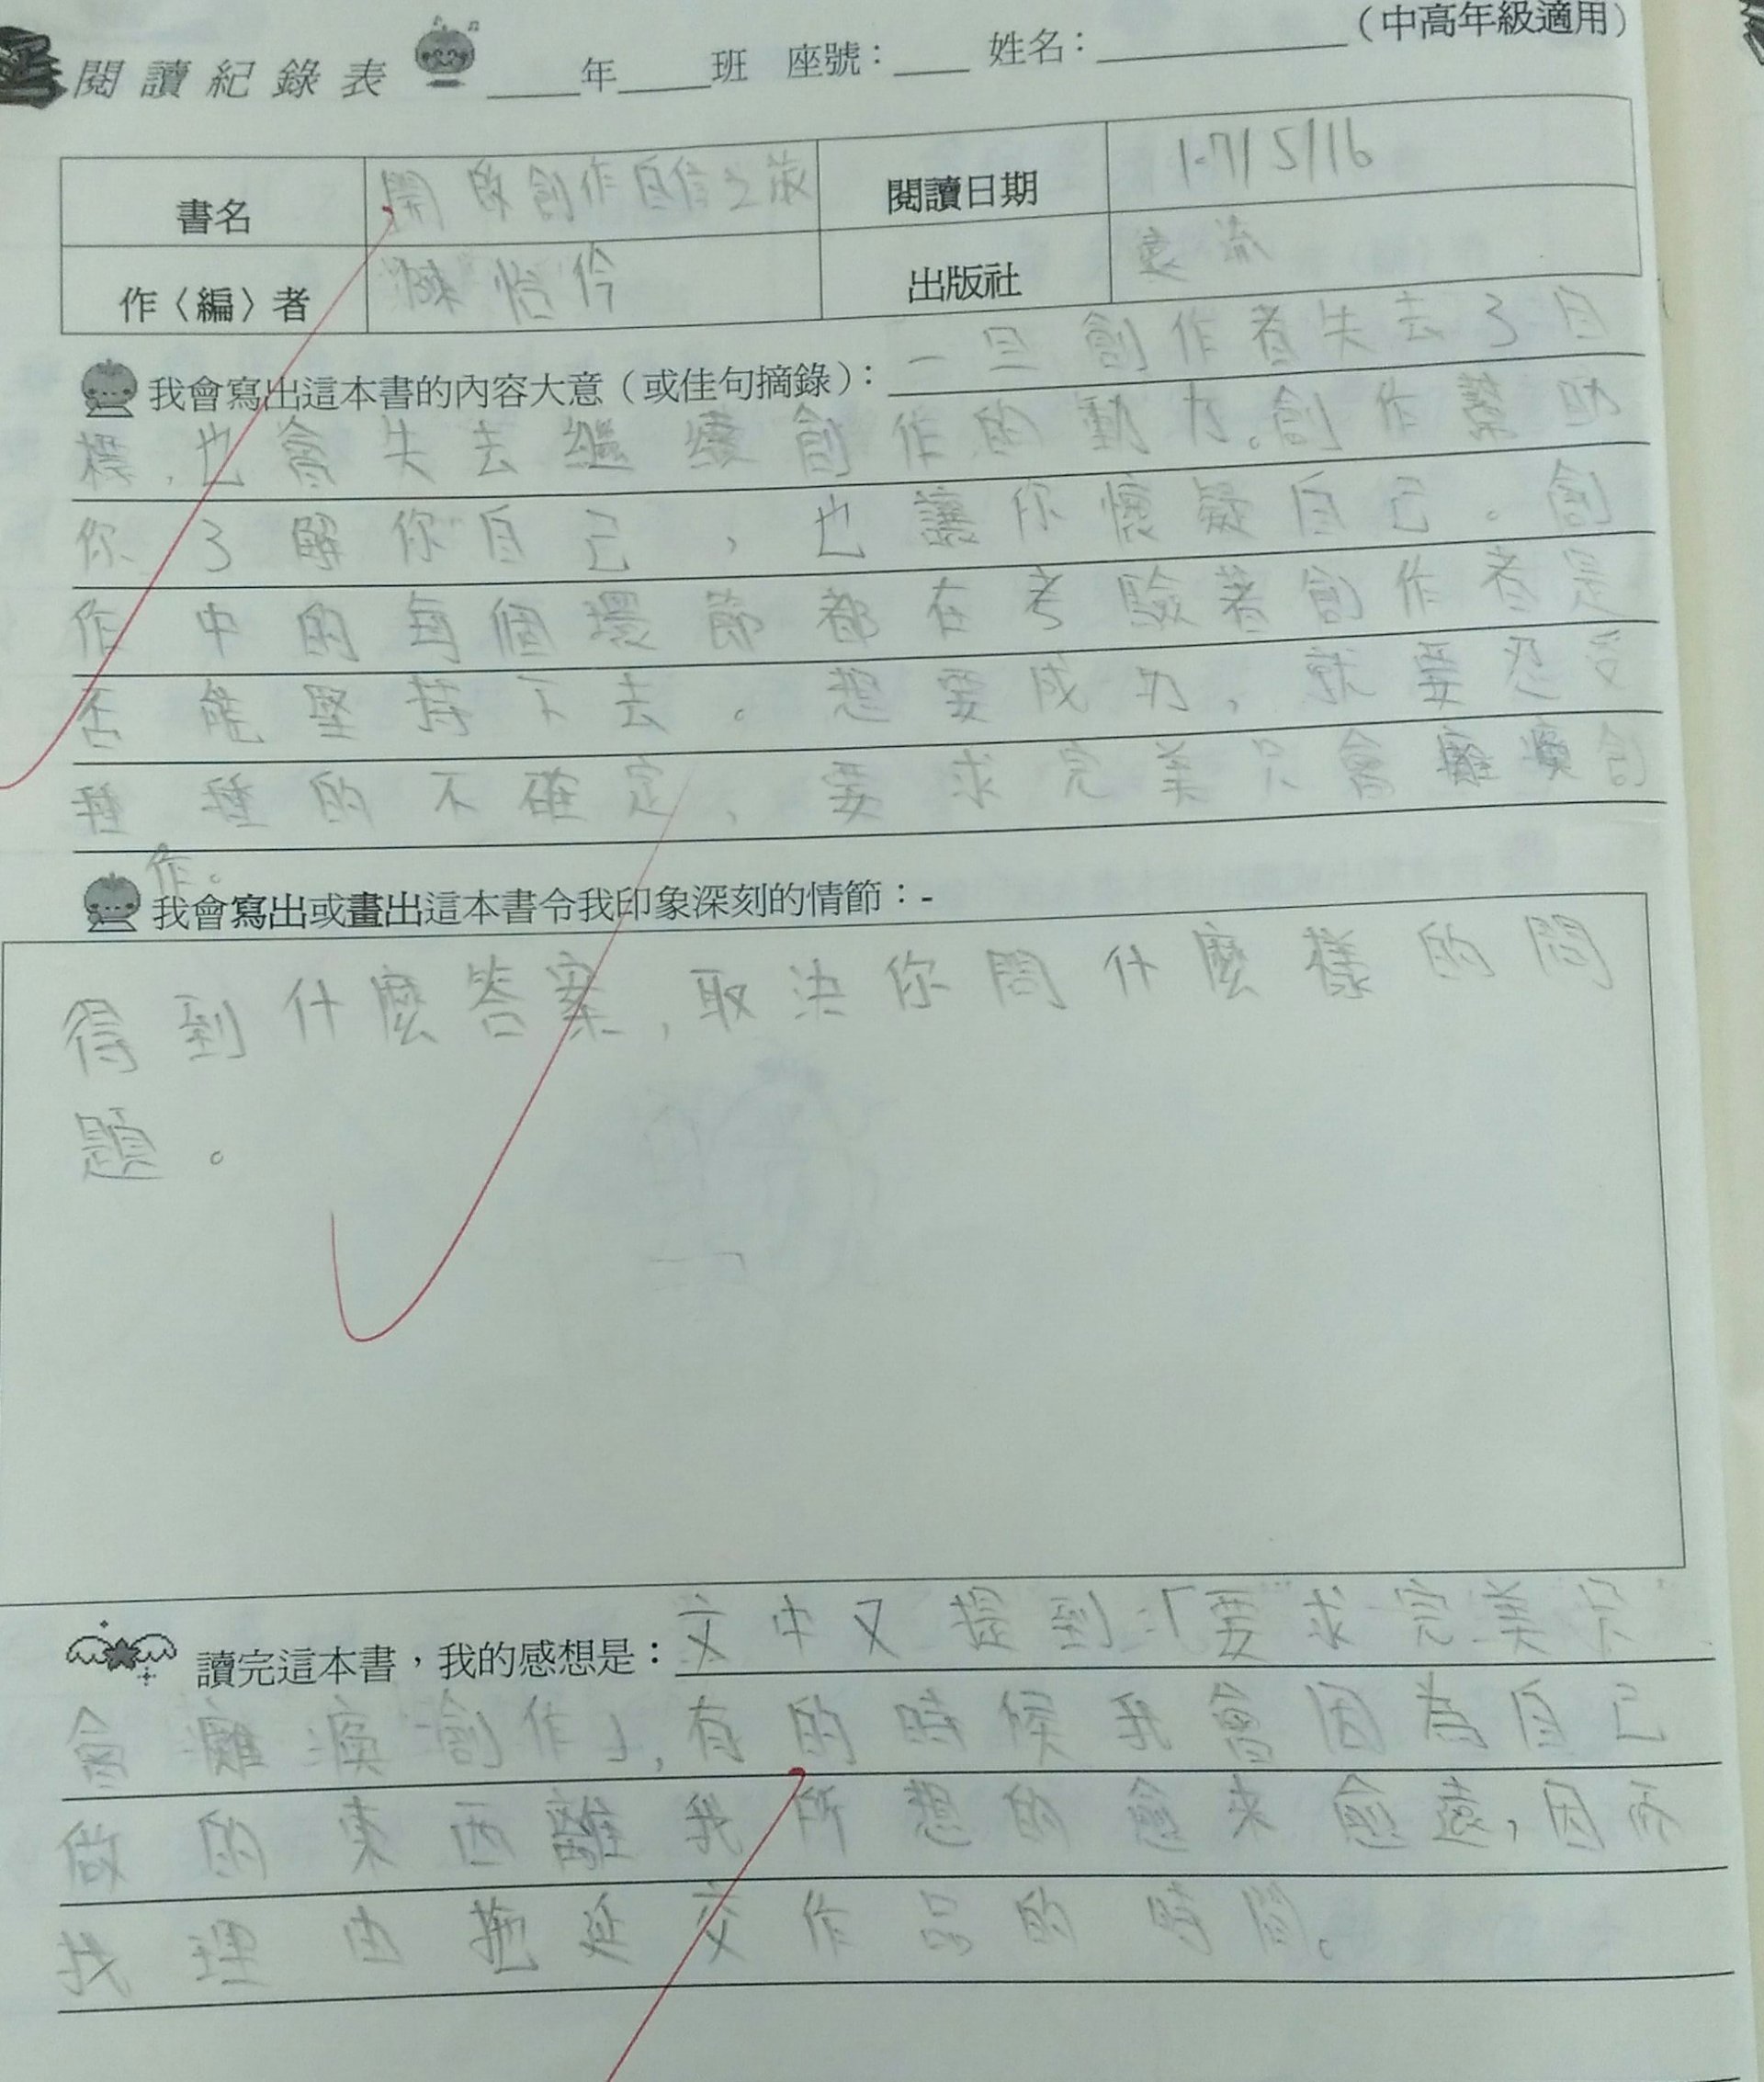 閱讀紀錄表 ____年____班 座號：____ 姓名：__________（中高年級適用）
書名 開啟創作自信之旅 閱讀日期 5/16
作〈編〉者 陳怡伶 出版社 遠流
我會寫出這本書的內容大意（或佳句摘錄）：一旦創作者失去了目
標，也會失去繼續創作的動力。創作幫助
你了解你自己，也讓你懷疑自己。創
作中的每個環節都在考驗著創作者是
否能堅持下去。想要成功，就要忍受
種種的不確定，要求完美只會癱瘓創
作。
我會寫出或畫出這本書令我印象深刻的情節：-
得到什麼答案，取決你問什麼樣的問
題。
讀完這本書，我的感想是：文中又提到：「要求完美只
會癱瘓創作」，有的時候我會因為自己
做的東西離我所想的愈來愈遠，因而
找理由拖延交作品的時間。